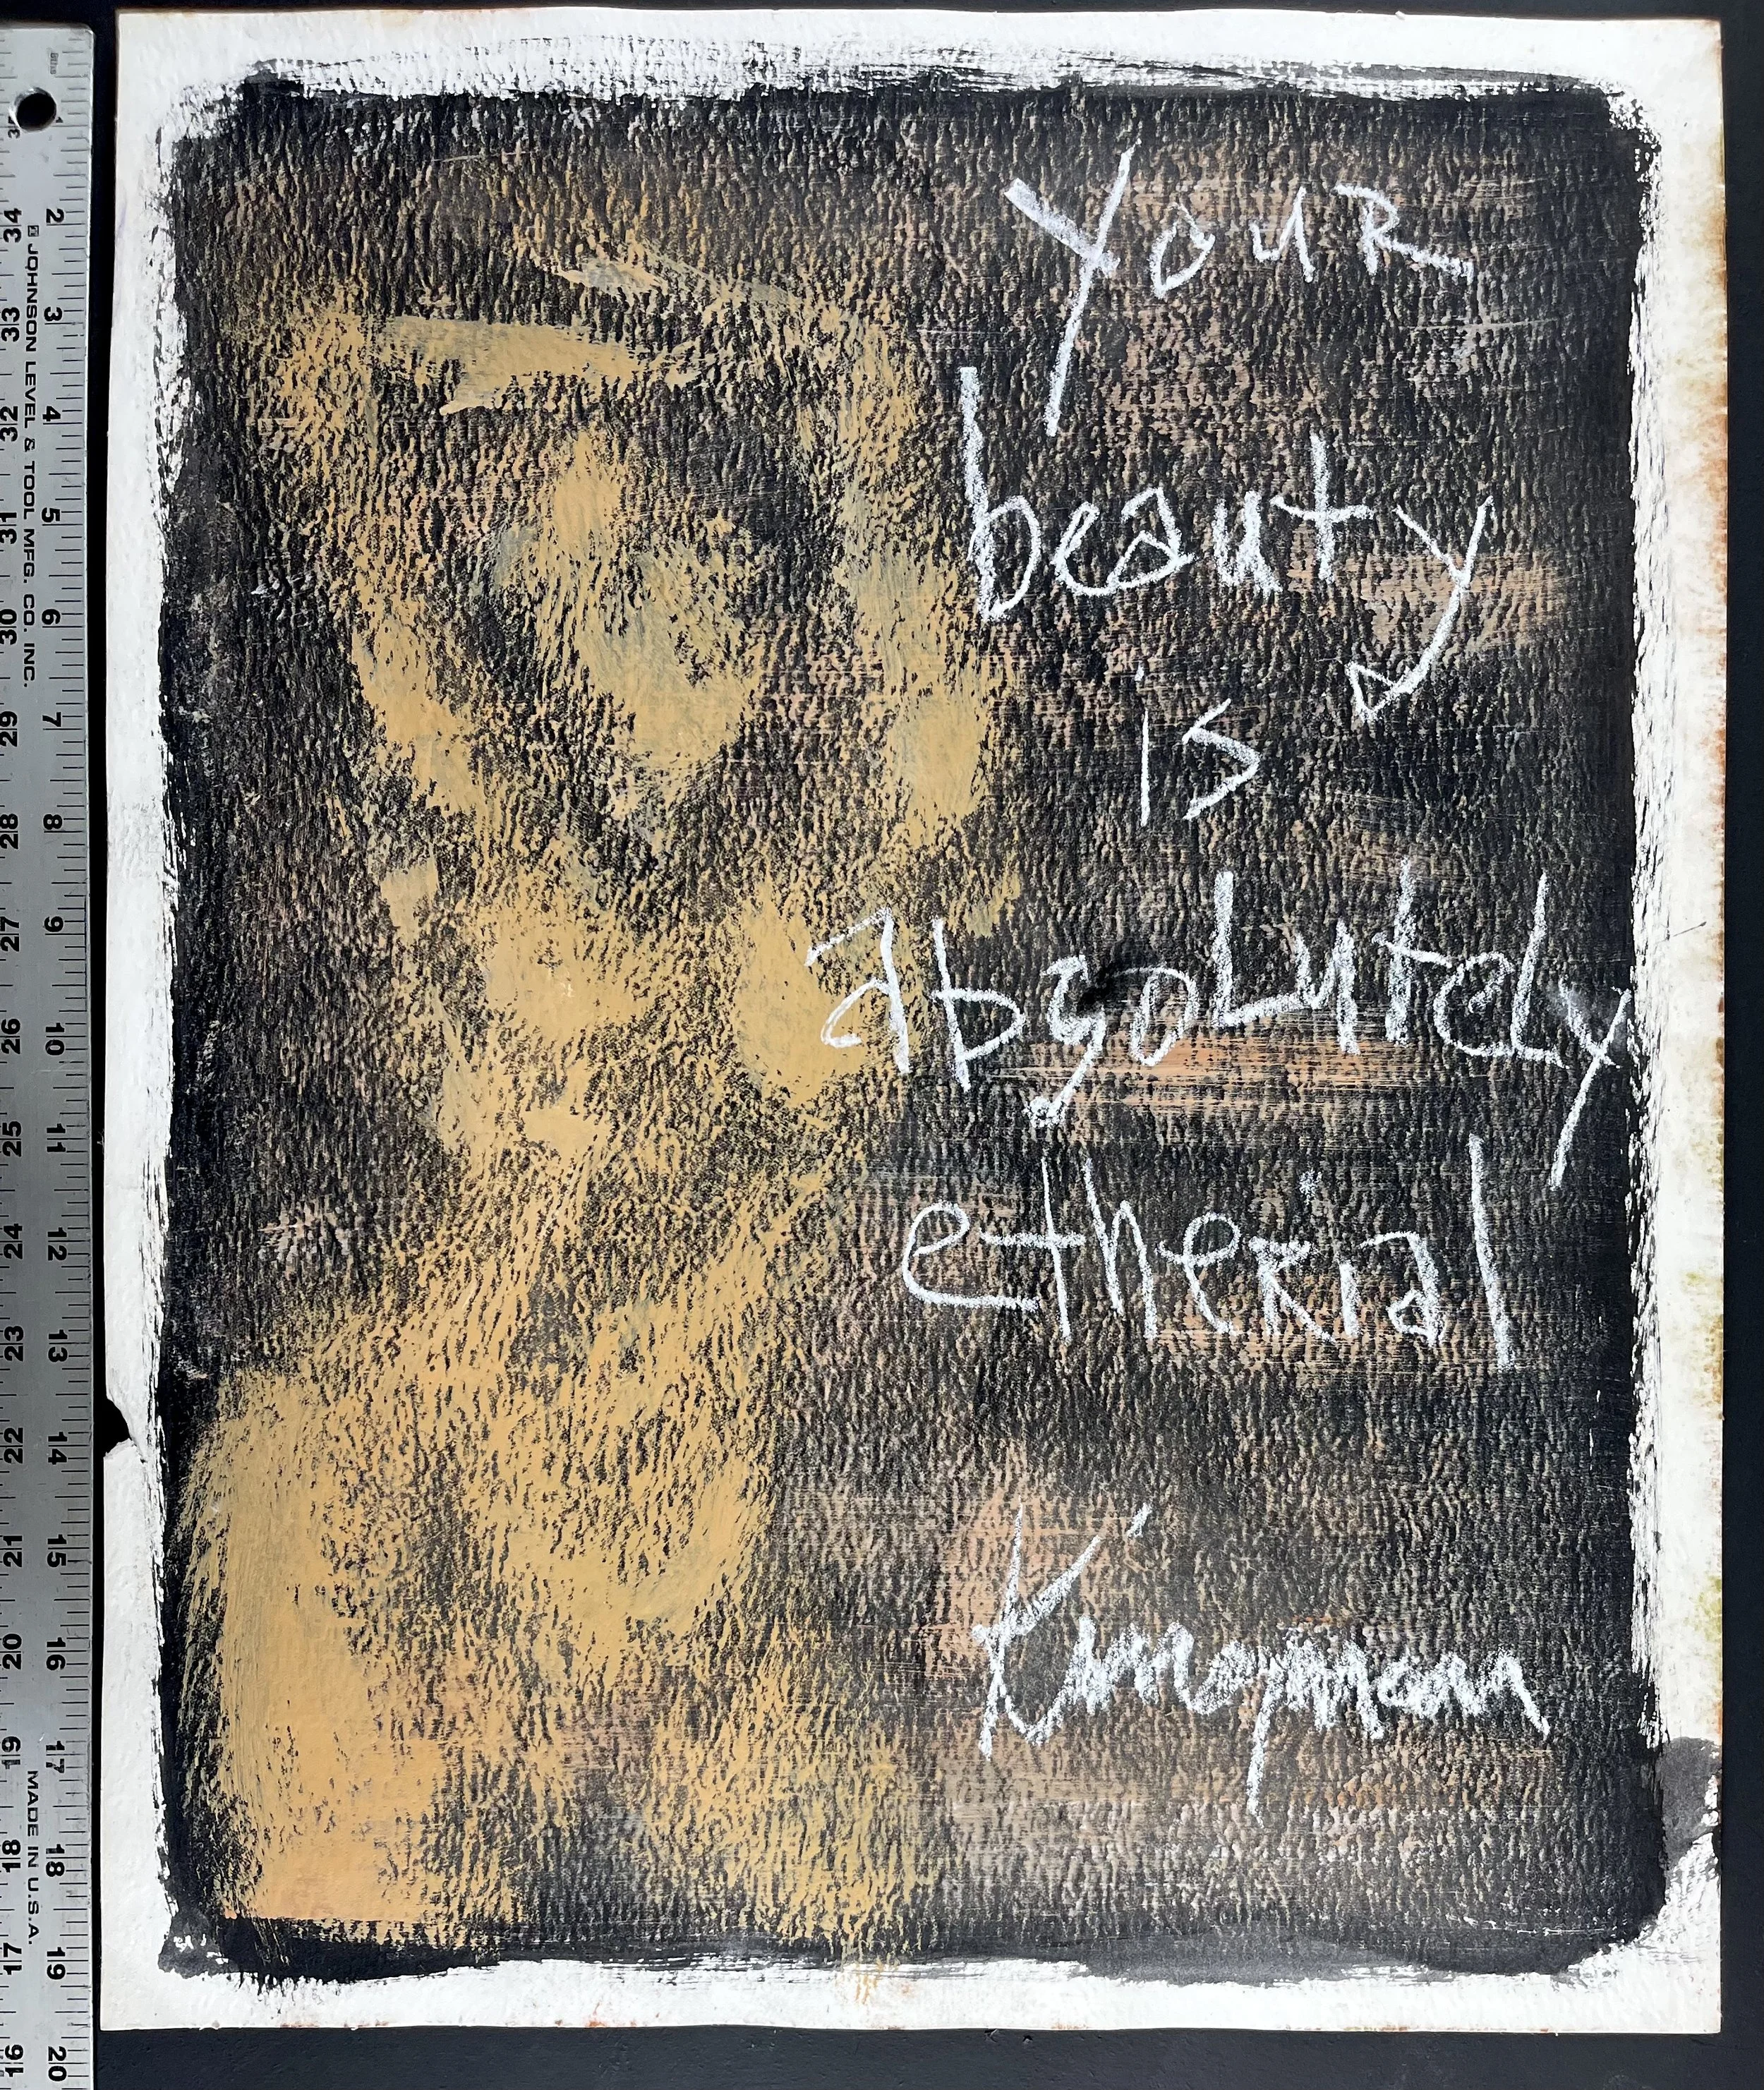 Your
beauty
is
absolutely
etherial
Kingman
JOHNSON LEVEL & TOOL MFG. CO. INC.
MADE IN U.S.A.
1 2 3 4 5 6 7 8 9 10 11 12 13 14 15 16 17 18 19 20
34 33 32 31 30 29 28 27 26 25 24 23 22 21 20 19 18 17 16